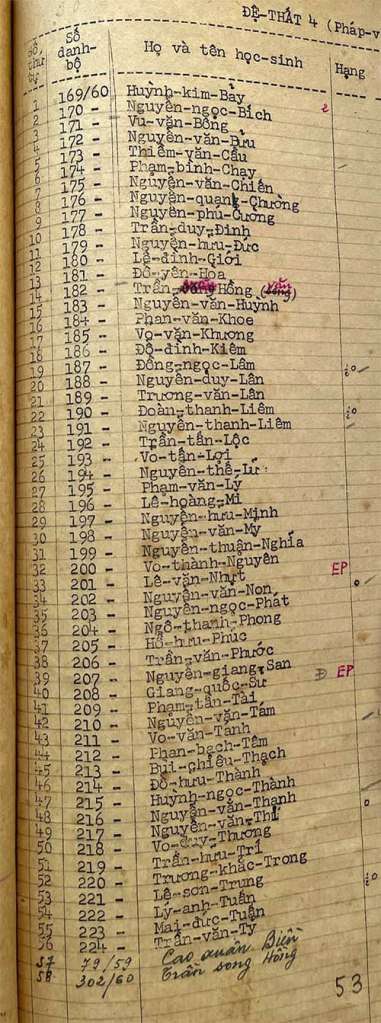 ĐỆ-THẤT 4 (Pháp-v
Số thứ tự Số danh-bộ Họ và tên học-sinh Hạng
1 169/60 Huỳnh-kim-Bảy
2 170 - Nguyễn-ngọc-Bích
3 171 - Vu-văn-Bông
4 172 - Nguyễn-văn-Bửu
5 173 - Thiềm-văn-Cầu
6 174 - Phạm-bình-Chay
7 175 - Nguyễn-văn-Chiến
8 176 - Nguyễn-quang-Chường
9 177 - Nguyễn-phú-Cường
10 178 - Trần-duy-Đinh
11 179 - Nguyễn-hưu-Đức
12 180 - Lê-đình-Giới
13 181 - Đỗ-yên-Hoa
14 182 - Trần- Hồng
15 183 - Nguyễn-văn-Huynh
16 184 - Phan-văn-Khoe
17 185 - Vo-văn-Khương
18 186 - Đỗ-đình-Kiêm
19 187 - Đồng-ngọc-Lâm
20 188 - Nguyễn-duy-Lân
21 189 - Trương-văn-Lân
22 190 - Đoàn-thanh-Liêm
23 191 - Nguyễn-thanh-Liêm
24 192 - Trần-tấn-Lộc
25 193 - Vo-tấn-Lợi
26 194 - Nguyễn-thế-Lư
27 195 - Phạm-văn-Ly
28 196 - Lê-hoàng-Mi
29 197 - Nguyễn-hưu-Minh
30 198 - Nguyễn-văn-My
31 199 - Nguyễn-thuận-Nghĩa
32 200 - Vo-thành-Nguyên EP
33 201 - Lê-văn-Nhựt
34 202 - Nguyễn-văn-Non
35 203 - Nguyễn-ngọc-Phát
36 204 - Ngô-thanh-Phong
37 205 - Hồ-hưu-Phúc
38 206 - Trần-văn-Phước
39 207 - Nguyễn-giang-San Đ EP
40 208 - Giang-quốc-Sư
41 209 - Phạm-tấn-Tài
42 210 - Nguyễn-văn-Tám
43 211 - Vo-văn-Tánh
44 212 - Phan-bạch-Tâm
45 213 - Bùi-chiêu-Thạch
46 214 - Đỗ-hưu-Thành
47 215 - Huỳnh-ngọc-Thành
48 216 - Nguyễn-văn-Thanh
49 217 - Nguyễn-văn-Thi
50 218 - Vo-duy-Thương
51 219 - Trần-hưu-Trí
52 220 - Trương-khắc-Trong
53 221 - Lê-sơn-Trung
54 222 - Lý-anh-Tuấn
55 223 - Mai-đức-Tuấn
56 224 - Trần-văn-Ty
57 79/59 Cao xuân Biền
58 302/60 Trần song Hồng
53